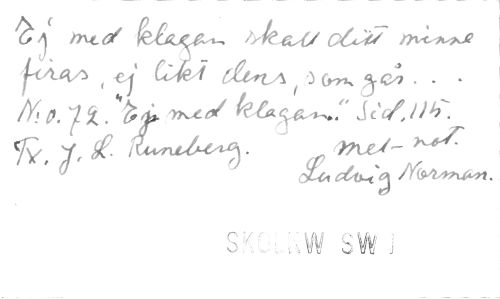 Ej med klagan skall ditt minne
firas, ej likt dens, som går...
N:o. 72. "Ej med klagan." Sid. 115.
Tx. J. L. Runeberg. met-not.
Ludvig Norman.
SW